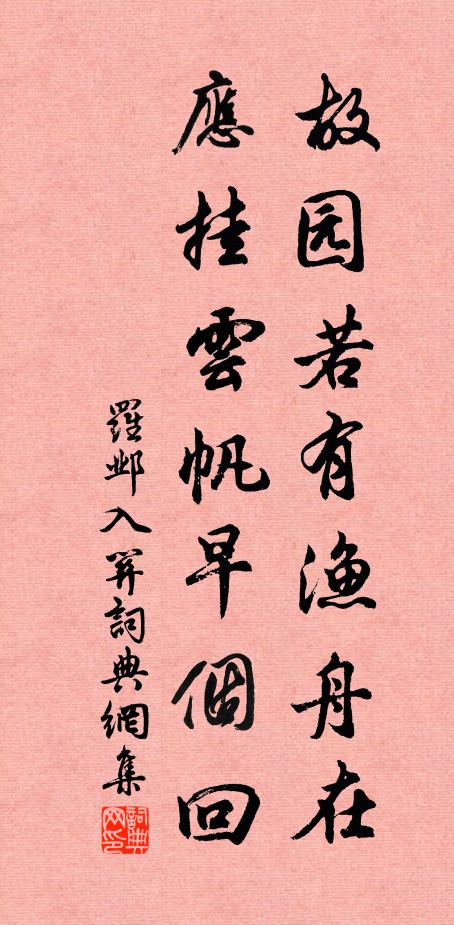 故园若有渔舟在
應挂雲帆早個回
羅邺入關詞典網集
詞典网印